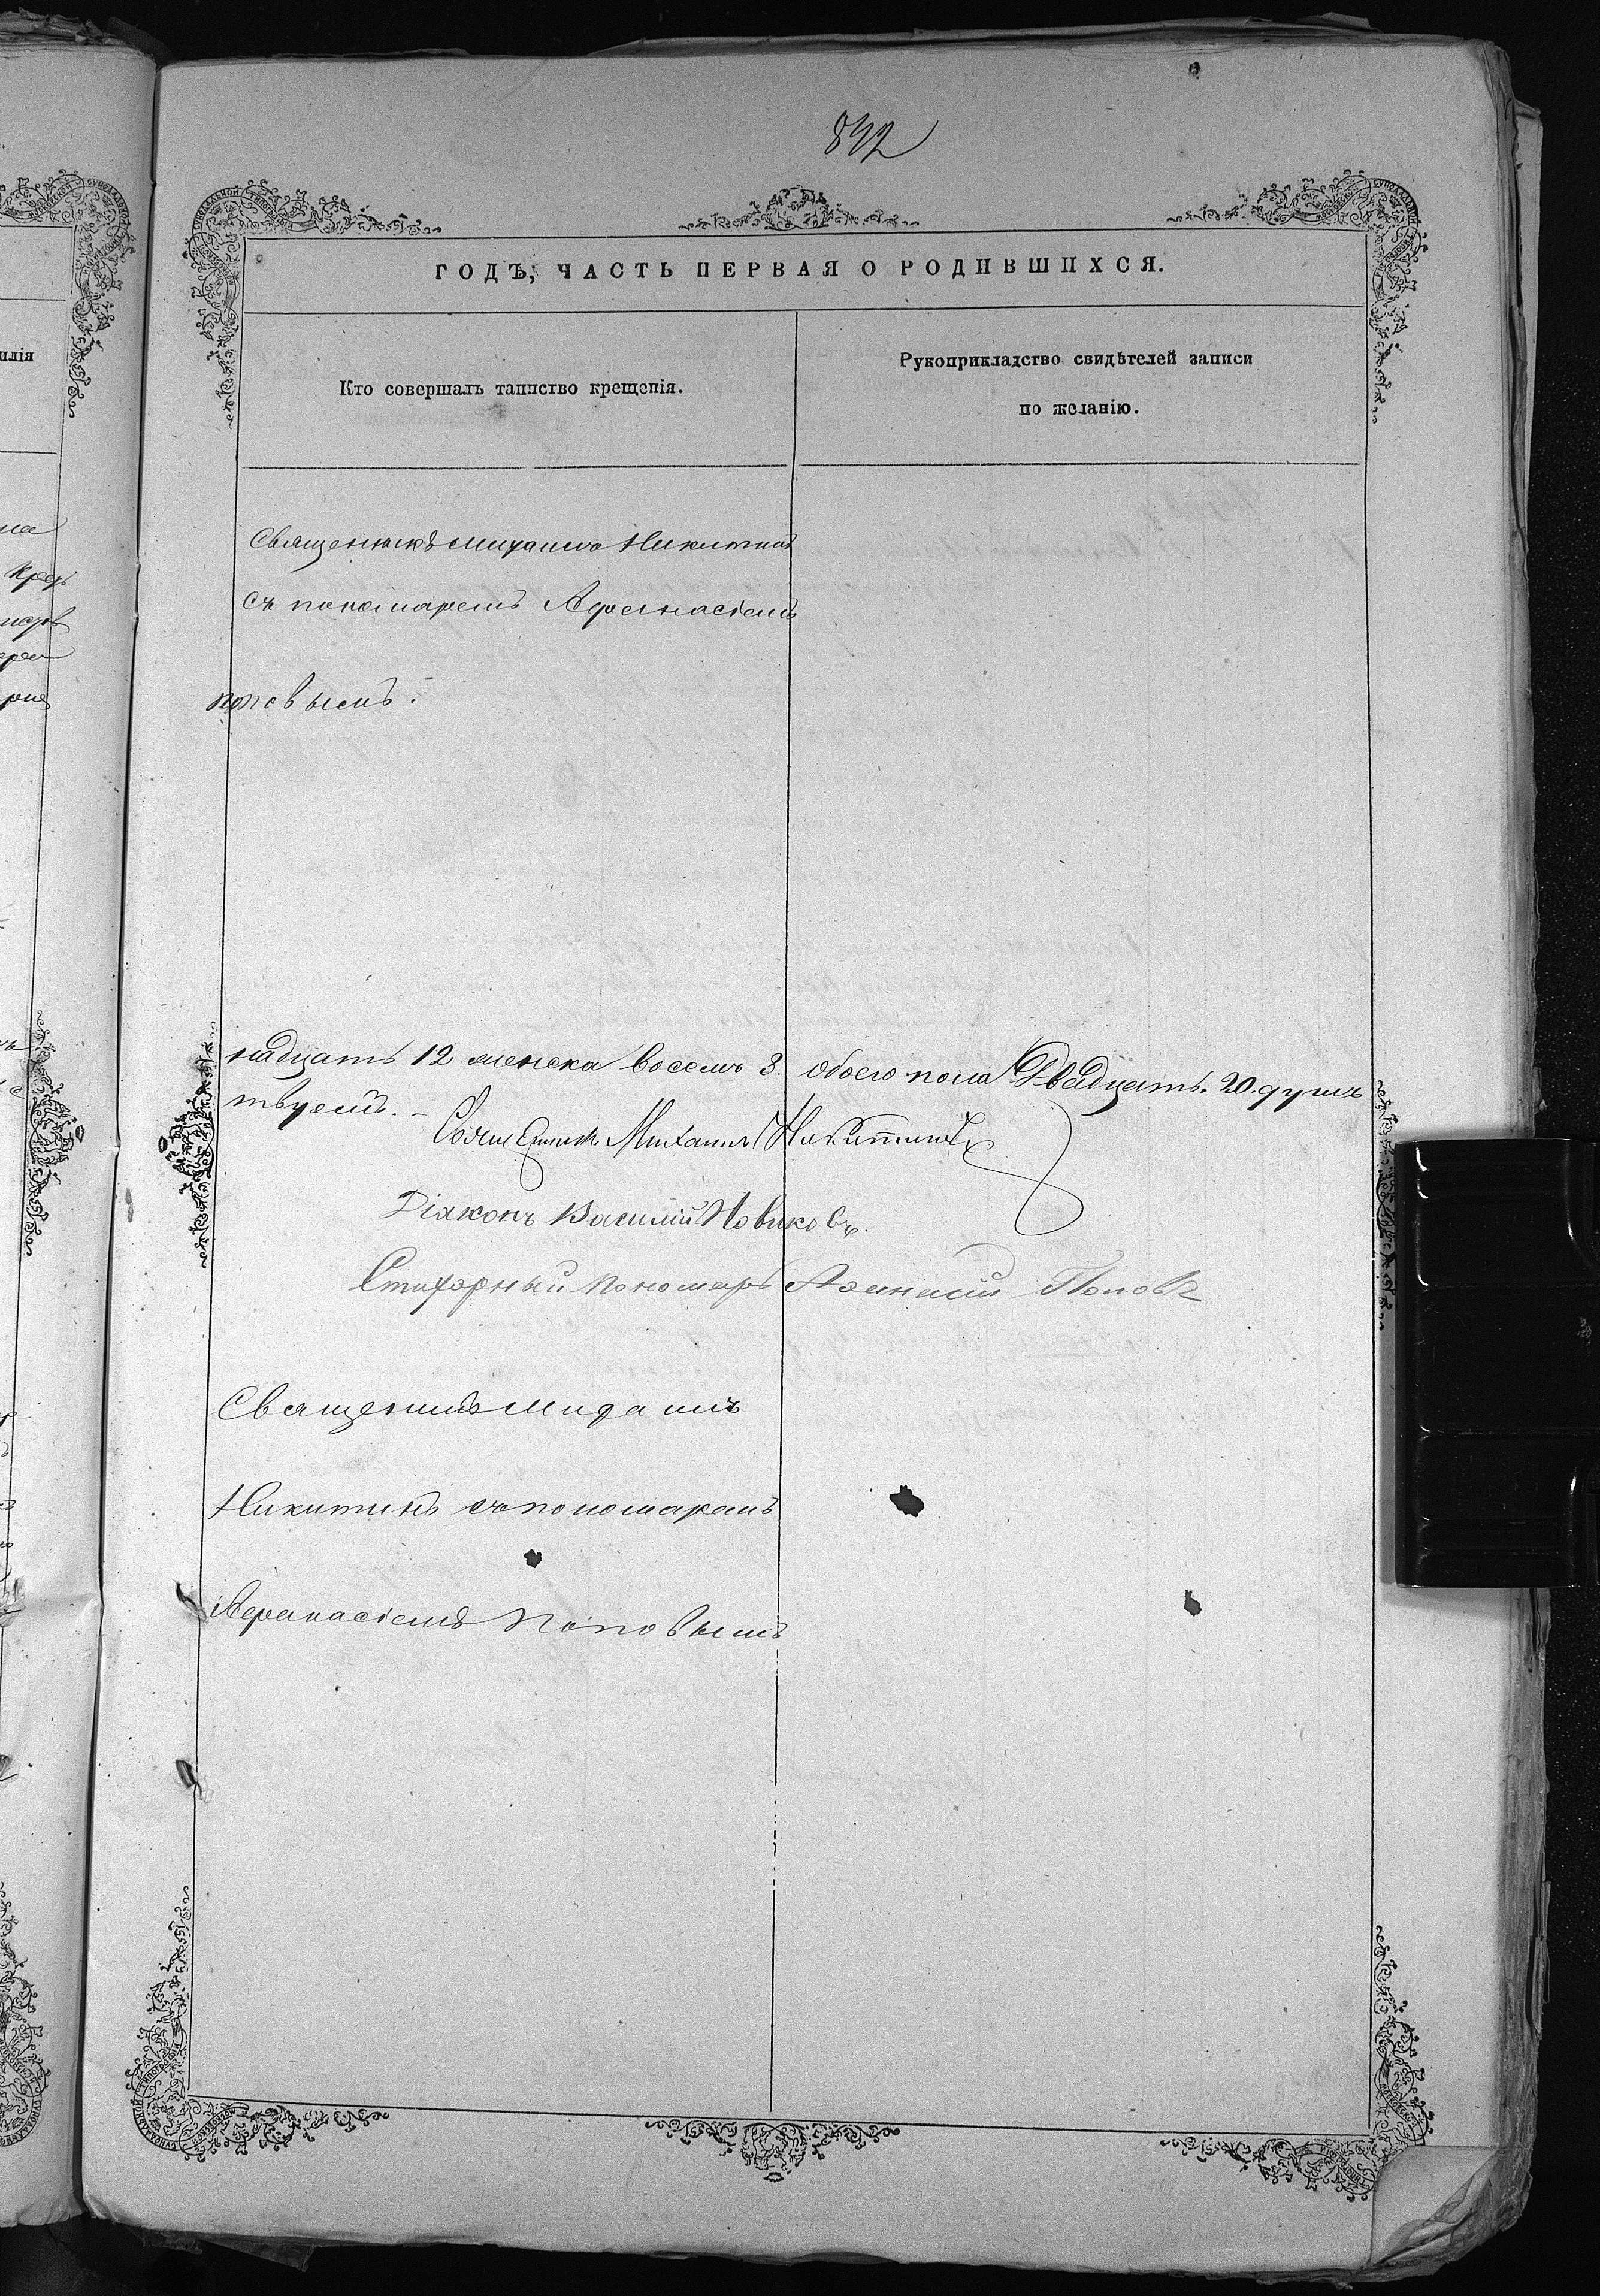 892
ГОДЪ, ЧАСТЬ ПЕРВАЯ О РОДИВШИХСЯ.
Кто совершалъ таинство крещенія.
Рукоприкладство свидѣтелей записи
по желанію.
Священникъ Михаилъ Никитинъ
съ пономаремъ Афонасіемъ
повымъ.
надцать 12 женска восемь 8. обоего пола Двадцать. 20. душъ
твуемъ. –
Священникъ Михаилъ Никитинъ
Діаконъ Василій Новиковъ.
Стихарный пономарь Афанасій Поповъ
Священникъ Михаилъ
Никитинъ съ пономаремъ
Афанасіемъ Поповымъ